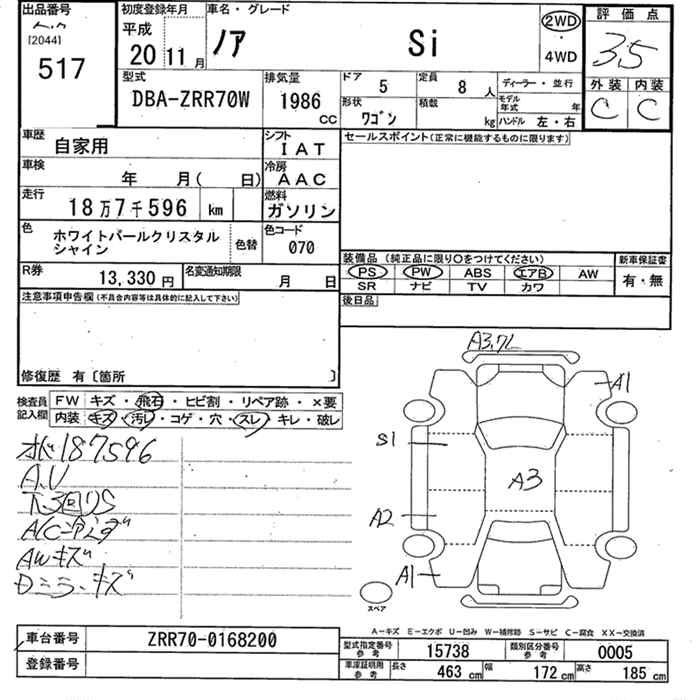 出品番号
[2044]
517
初度登録年月
平成
20 11月
車名・グレード
ノア Si
2WD
・
4WD
評価点
3.5
外装 内装
C C
型式
DBA-ZRR70W
排気量
1986 CC
ドア 5
定員 8人
形状 ワゴン
積載 kg
ディーラー・並行
モデル年式 年
ハンドル 左・右
車歴 自家用
シフト IAT
セールスポイント(正常に機能するものに限ります)
車検 年 月( 日)
冷房 AAC
走行 18万7千596 km
燃料 ガソリン
色 ホワイトパールクリスタル
シャイン
色替
色コード 070
装備品(純正品に限り○をつけてください)
新車保証書
PS PW ABS エアB AW
SR ナビ TV カワ
有・無
R券 13,330円
名変通知期限 月 日
後日品
注意事項申告欄(不具合内容等は具体的に記入して下さい)
修復歴 有〔箇所 〕
検査員
記入欄
FW キズ・飛石・ヒビ割・リペア跡・×要
内装 キズ・汚レ・コゲ・穴・スレ・キレ・破レ
187596
A.U
下3回リS
A/C冷えず
AWキズ
Dミラーキズ
A1
S1
A3
A2
A1
スペア
A-キズ E-エクボ U-凹み W-補修跡 S-サビ C-腐食 XX-交換済
車台番号 ZRR70-0168200
登録番号
型式指定番号
参考
15738
類別区分番号
参考
0005
車庫証明用
参考
長さ 463cm 幅 172cm 高さ 185cm